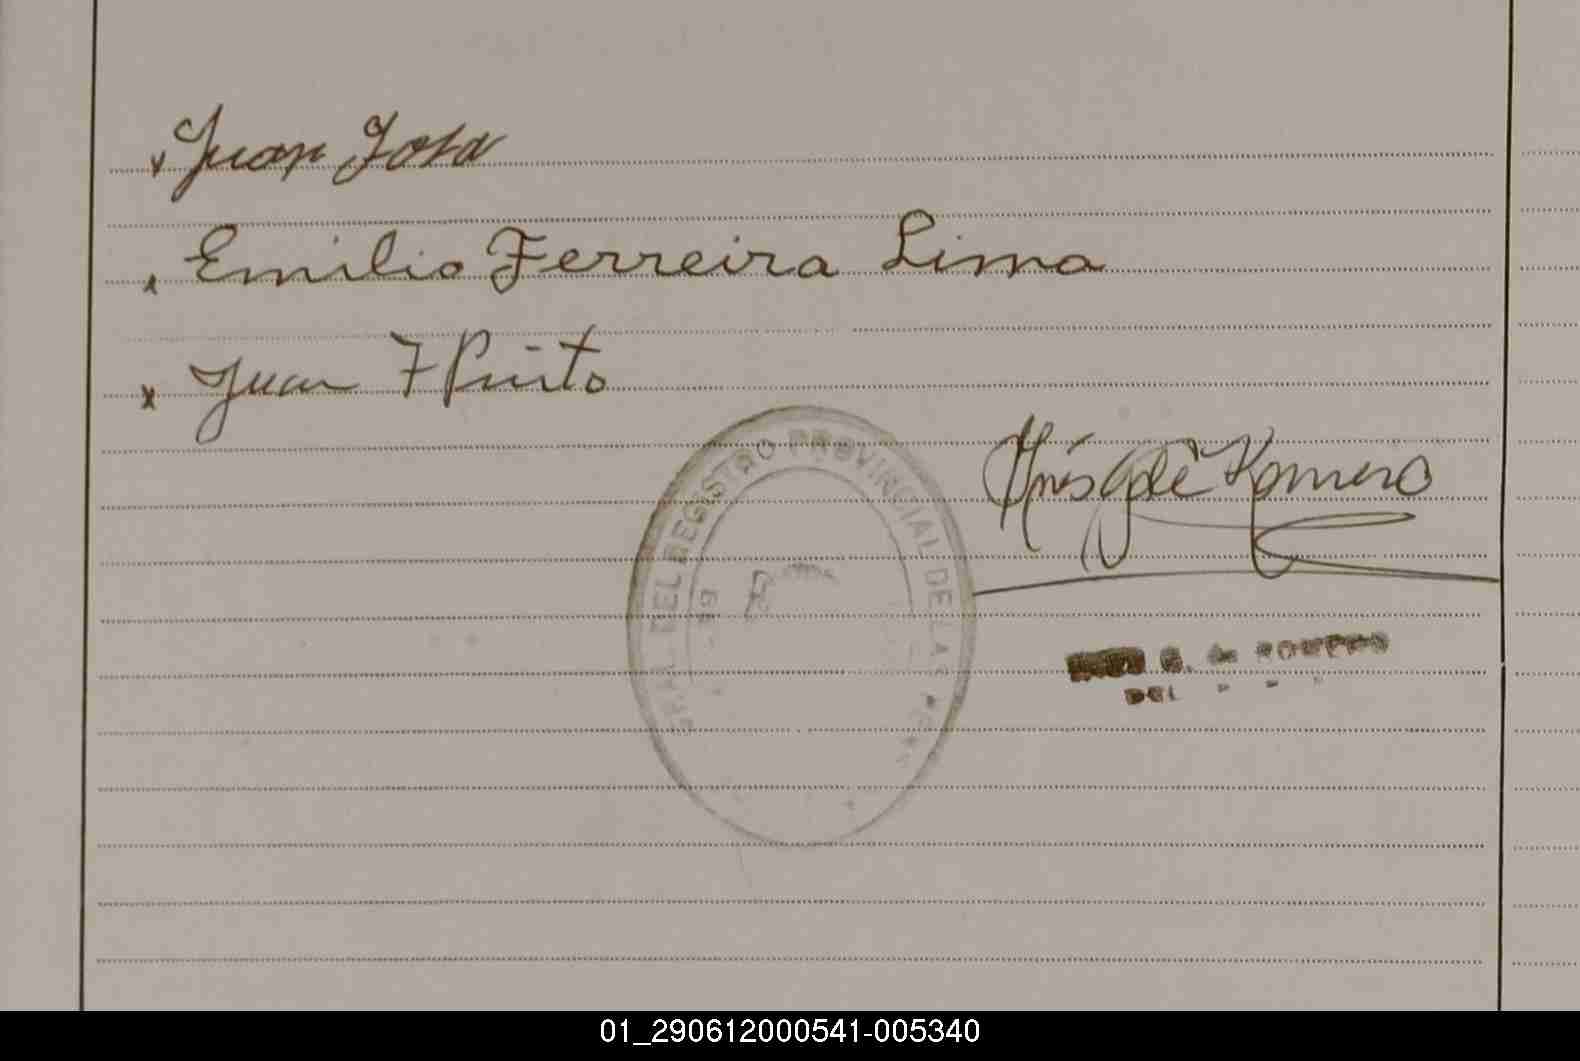 x Juan Josa
x Emilio Ferreira Lima
x Juan F Pinto
Inés G de Romero
DEL REGISTRO PROVINCIAL DE LAS
G. de ROMERO
DEL
01_290612000541-005340